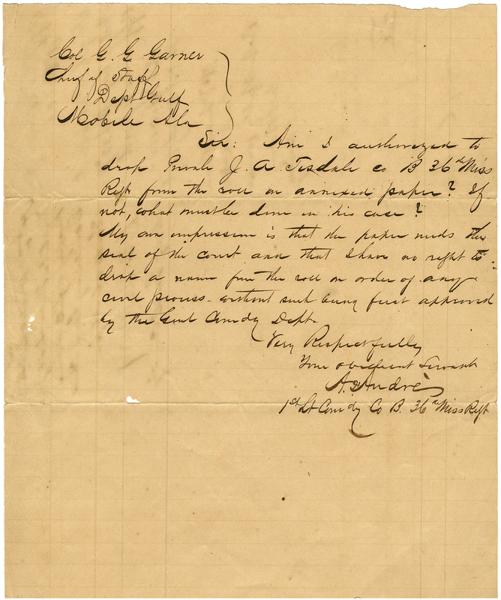 Col G. G. Garner
Chief of Staff
Dept Gulf
Mobile Ala
Sir: Am I authorized to
drop Private J. A. Tisdale co B 36th Miss
Regt from the roll on annexed paper? If
not, what must be done in his case?
My own impression is that the paper needs the
seal of the court and that I have no right to
drop a name from the roll on order of any
civil process without such being first approved
by the Genl Comdg Dept.
Very Respectfully
Your obedient Servant
A. André
1st Lt Comdg Co B. 36th Miss Regt